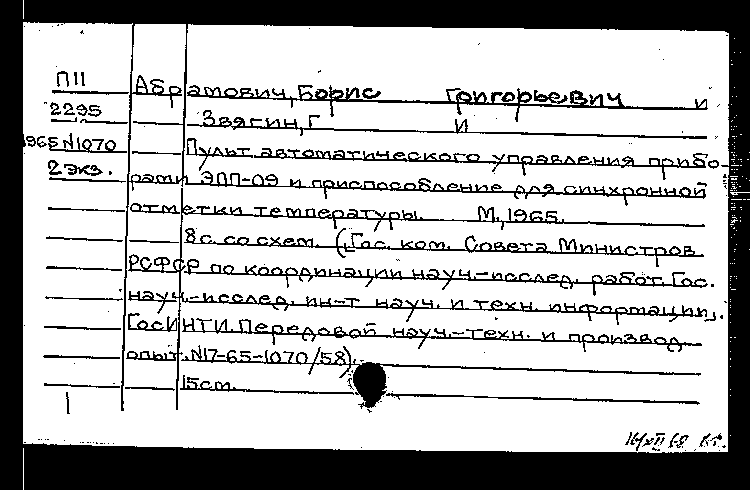 П11 Абрамович, Борис Григорьевич и
2295 Звягин, Г И
1965 N1070 Пульт автоматического управления прибо-
2 экз. рами ЭПП-09 и приспособление для синхронной
отметки температуры. М., 1965.
8 с. со схем. (Гос. ком. Совета Министров
РСФСР по координации науч.-исслед. работ. Гос.
науч.-исслед. ин-т науч. и техн. информации.
ГосИНТИ. Передовой науч.-техн. и производ.
опыт. N17-65-1070/58).
15 см.
14/XII 68